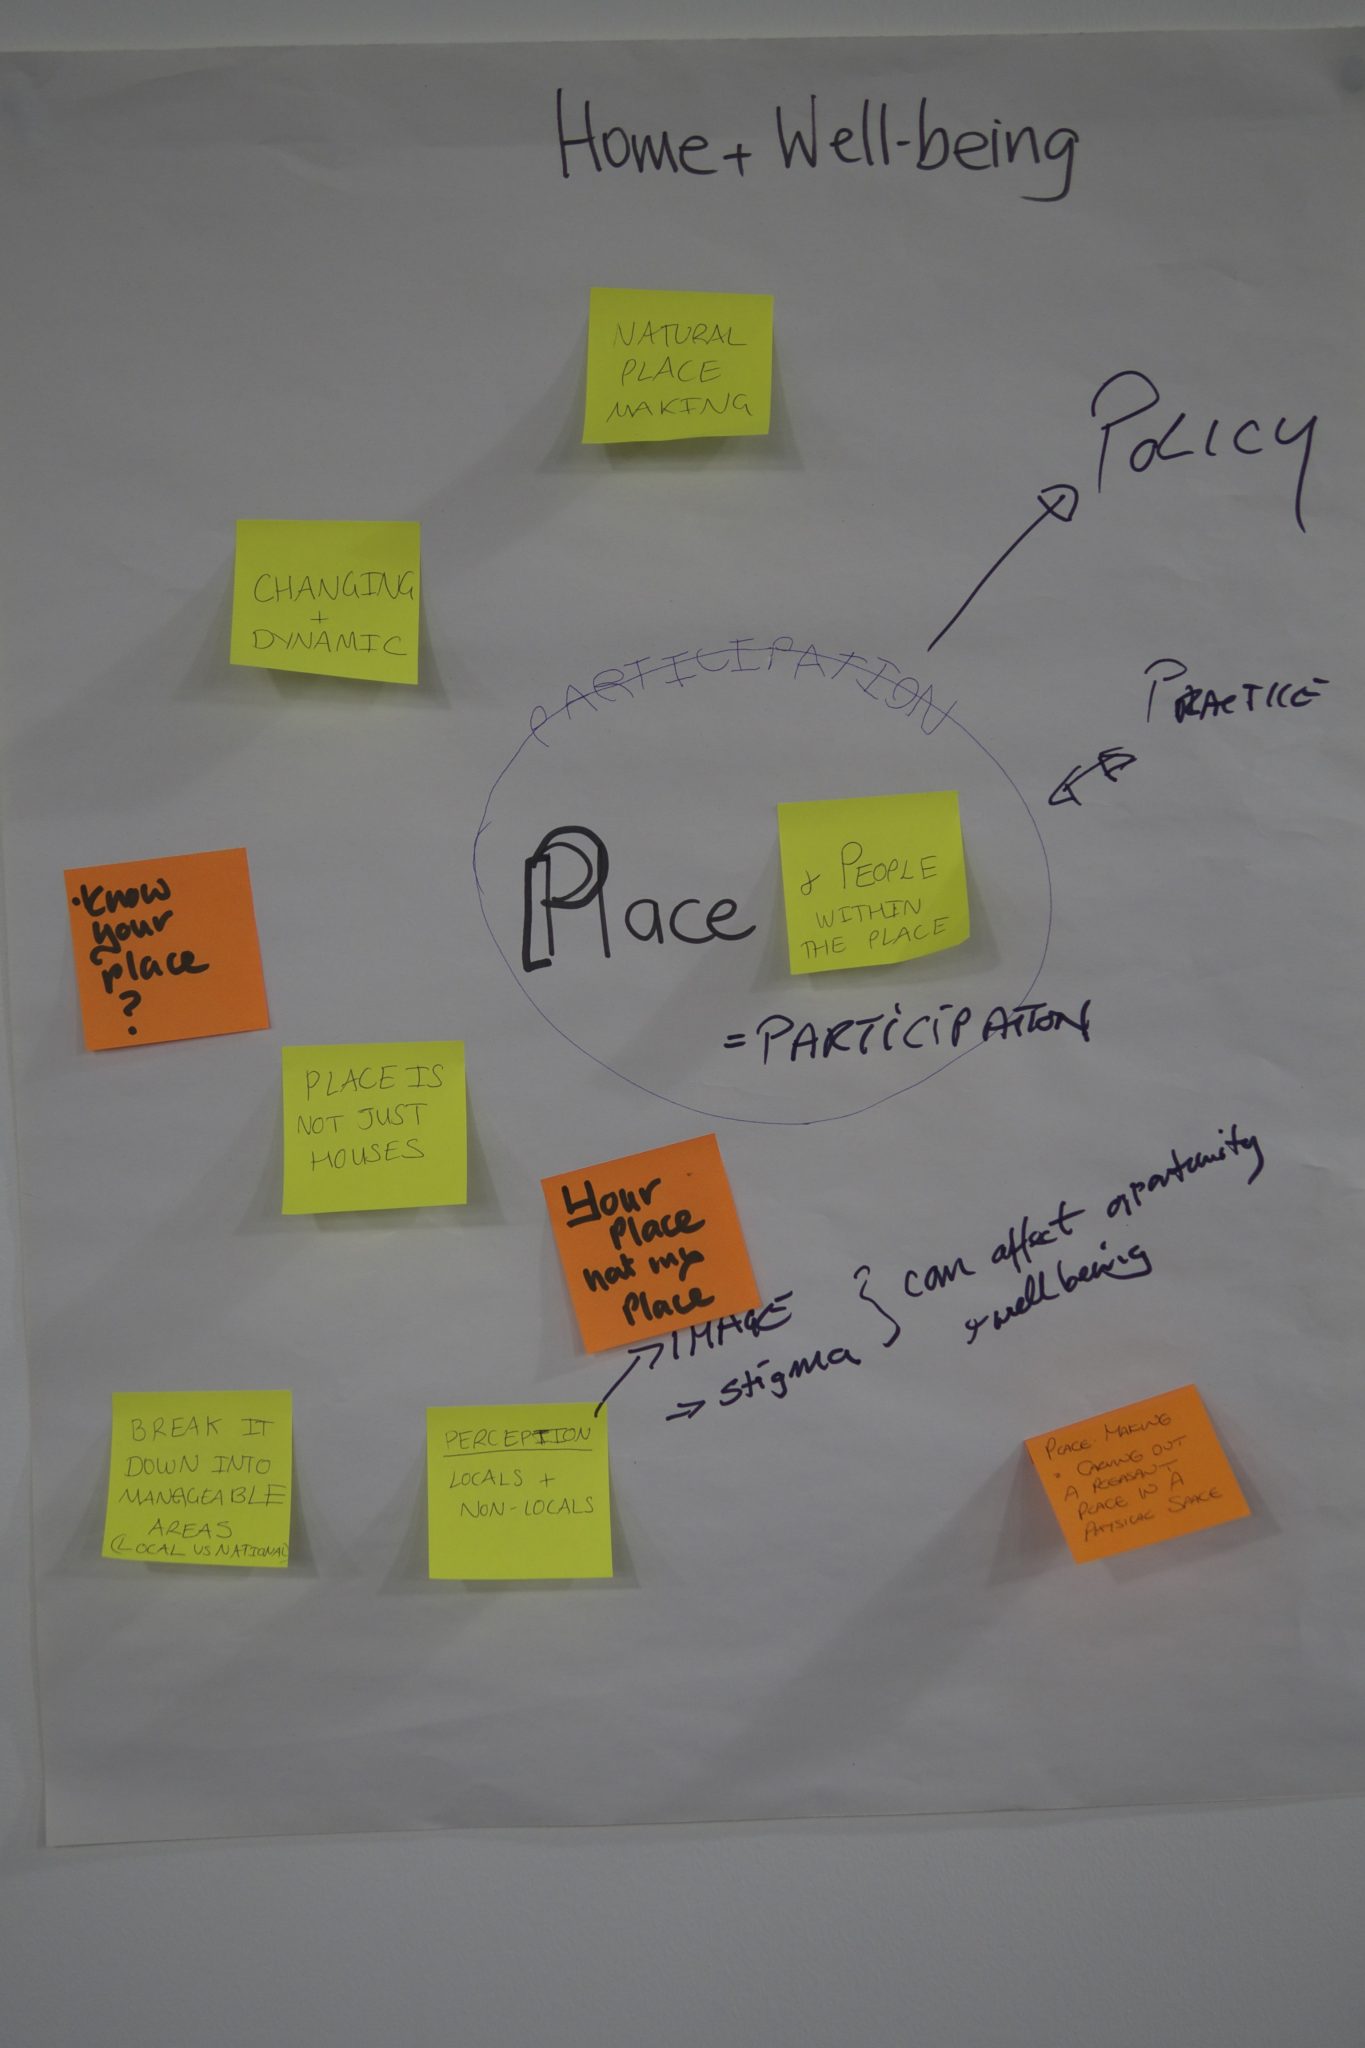 Home + Well-being
NATURAL
PLACE
MAKING
POLICY
CHANGING
+
DYNAMIC
PARTICIPATION
PRACTICE
Place
& PEOPLE
WITHIN
THE PLACE
= PARTICIPATION
• Know
your
place
?
PLACE IS
NOT JUST
HOUSES
Your
Place
not my
Place
→ IMAGE
→ stigma
} can affect oportunity
+ wellbeing
BREAK IT
DOWN INTO
MANAGEABLE
AREAS
(LOCAL VS NATIONAL)
PERCEPTION
LOCALS +
NON-LOCALS
PLACE MAKING
• CARVING OUT
A PLEASANT
PLACE IN A
PHYSICAL SPACE